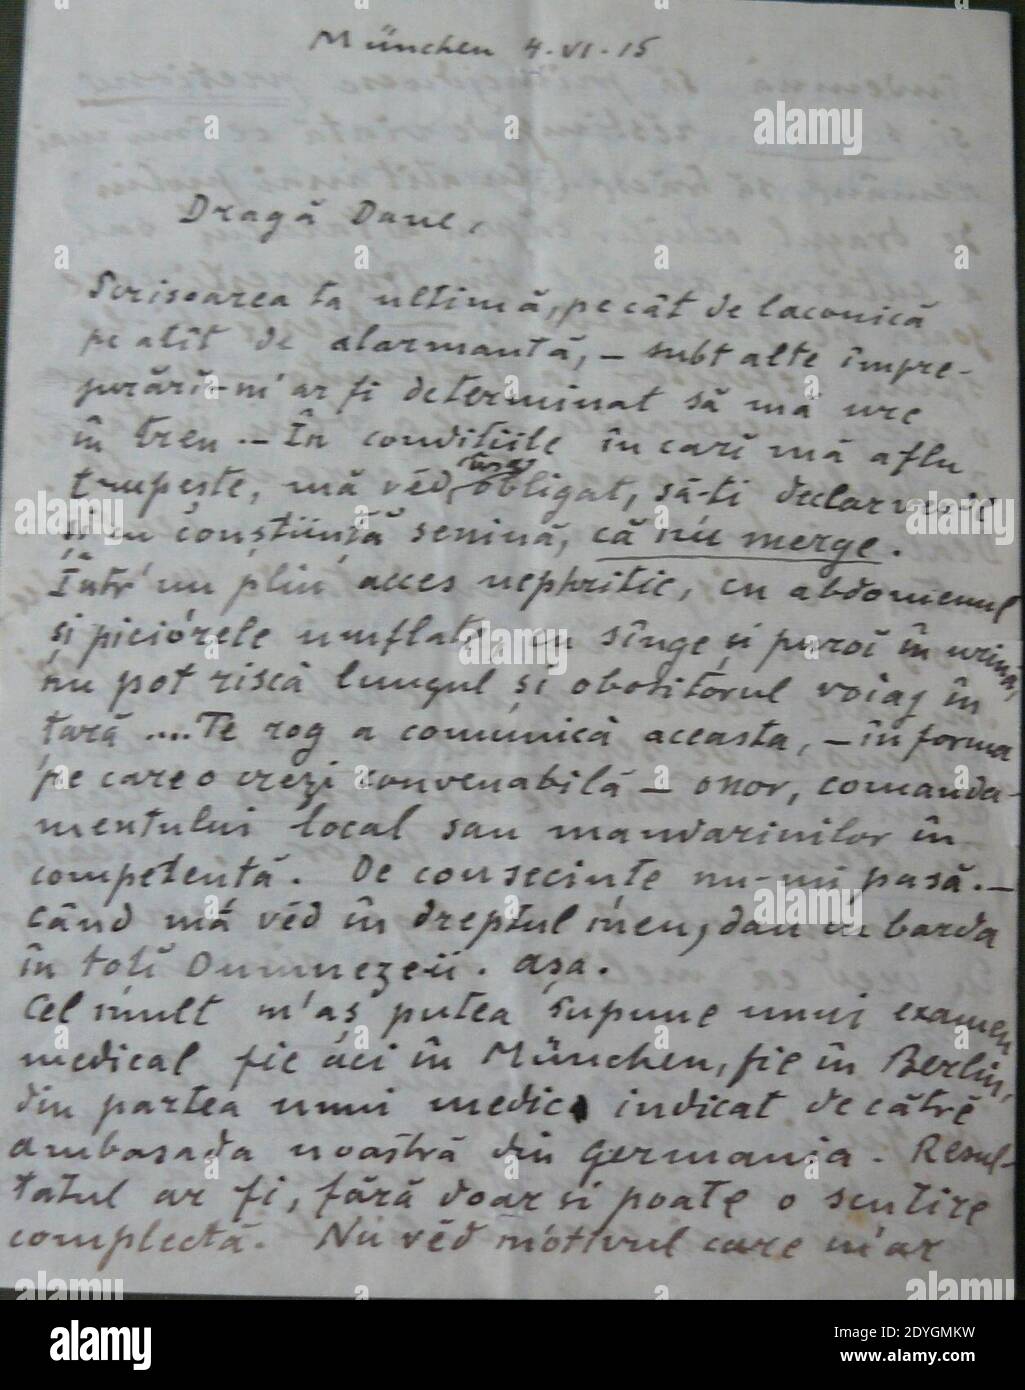 München 4.VI.15
Dragă Danc,
Scrisoarea ta ultimă, pe cât de laconică
pe atît de alarmantă, – subt alte împre-
jurări – m'ar fi determinat să mă urc
în tren. – În condițiile în cari mă aflu
trupește, mă vĕd însă obligat, să-ti declar
și cu conștiință senină, că nu merge.
Într'un plin acces nephritic, cu abdomenul
și piciórele umflate, cu sînge și puroi în urină,
nu pot riscà lungul și obositorul voiaj în
țară .... Te rog a comunicà aceasta, – în forma
pe care o crezi convenabilă – onor, comanda-
mentului local sau mandarinilor în
competență. De consecințe nu-mi pasă. –
când mă vĕd în dreptul meu, dau cu barda
în toti Dumnezeii. Așa.
Cel mult m'aș putea supune unui examen
medical fie aci în München, fie în Berlin,
din partea unui medic indicat de cătrĕ
ambasada noastră din Germania. Resul-
tatul ar fi, fără doar si poate o scutire
complectă. Nu vĕd motivul care m'ar
alamy
a
Image ID: 2DYGMKW
www.alamy.com